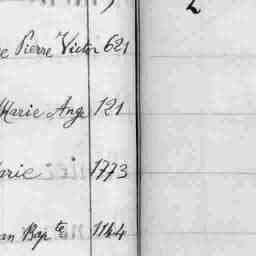 L
e Pierre Victor 621
Marie Ange 121
arie " " 1773
an Bapte 1164